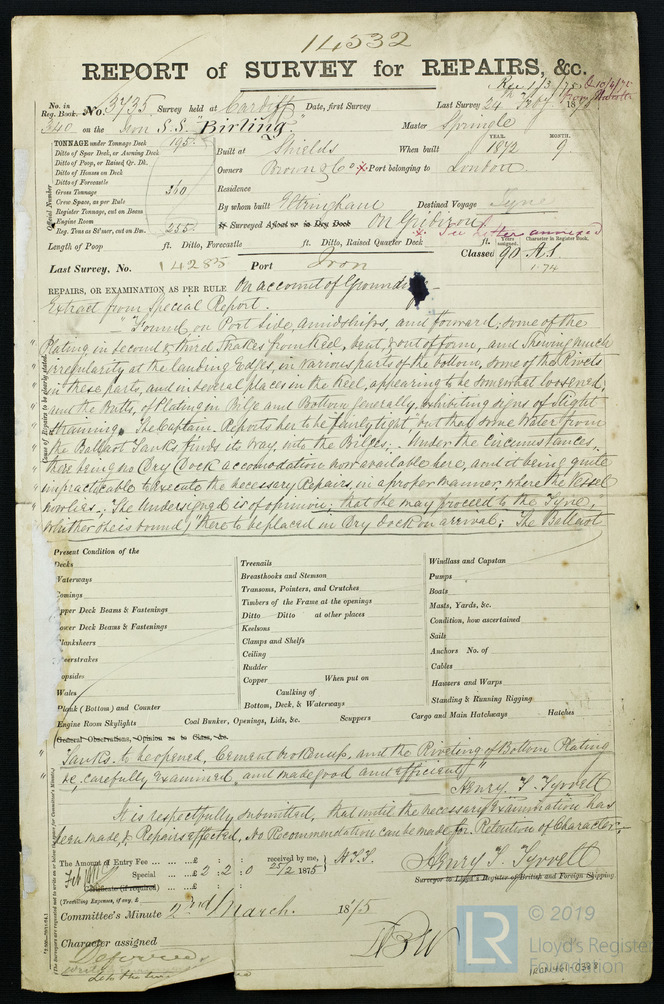 14532
REPORT of SURVEY for REPAIRS, &c.
Rec 1/3/75
No. in Reg. Book. No. 3735 Survey held at Cardiff Date, first Survey Last Survey 24th Feby. 1875
340 on the Iron S.S. "Birling" Master Springle
TONNAGE under Tonnage Deck 195
Ditto of Spar Deck, or Awning Deck
Ditto of Poop, or Raised Qr. Dk.
Ditto of Houses on Deck
Ditto of Forecastle
Gross Tonnage 340
Crew Space, as per Rule
Register Tonnage, cut on Beam
Engine Room
Reg. Tons as St'mer, cut on Bm. 255
Official Number
Built at Shields When built YEAR. 1872 MONTH. 9
Owners Brown & Co. Port belonging to London
Residence
By whom built Eltringham Destined Voyage Tyne
If Surveyed Afloat or in Dry Dock On Gridiron
× See letter annexed
Length of Poop ft. Ditto, Forecastle ft. Ditto, Raised Quarter Deck ft.
Years assigned. Character in Register Book.
Classed 90 A1
1.74
Last Survey, No. 14285 Port Iron
REPAIRS, OR EXAMINATION AS PER RULE On account of Grounding
Extract from Special Report.
Cause of Repairs to be clearly stated.
"Found on Port Side, amidships, and forward; some of the
Plating in Second & third Strakes from Keel, bent & out of form, and Shewing much
irregularity at the landing Edges, in various parts of the bottom, some of the Rivets
in these parts, and in several places in the Keel, appearing to be somewhat loosened,
and the Butts, of Plating in Bilge and Bottom generally, exhibiting signs of slight
straining. The Captain Reports her to be fairly tight but that some Water from
the Ballast Tanks finds its way, into the Bilges. Under the circumstances
there being no Dry Dock accomodation now available here, and it being quite
impracticable to Execute the necessary Repairs, in a proper manner, where the Vessel
now lies. The Undersigned is of opinion; that she may proceed to the Tyne,
whither she is bound, there to be placed in Dry Dock on arrival; The Ballast
Present Condition of the
Decks
Waterways
Comings
Upper Deck Beams & Fastenings
Lower Deck Beams & Fastenings
Planksheers
Sheerstrakes
Topsides
Wales
Plank (Bottom) and Counter
Engine Room Skylights Coal Bunker, Openings, Lids, &c. Scuppers Cargo and Main Hatchways Hatches
Treenails
Breasthooks and Stemson
Transoms, Pointers, and Crutches
Timbers of the Frame at the openings
Ditto Ditto at other places
Keelsons
Clamps and Shelfs
Ceiling
Rudder
Copper When put on
Caulking of
Bottom, Deck, & Waterways
Windlass and Capstan
Pumps
Boats
Masts, Yards, &c.
Condition, how ascertained
Sails
Anchors No. of
Cables
Hawsers and Warps
Standing & Running Rigging
General Observations, Opinion as to Class, &c.
Tanks to be opened, Cement broken up, and the Riveting of Bottom Plating
&c, carefully Examined, and made good and efficient"
Henry T. Tyrrell
It is respectfully submitted, that until the necessary Examination has
been made & Repairs effected, No Recommendation can be made for Retention of Character,
The Amount of Entry Fee £ : : received by me,
Special £ 2 : 2 : 0 25/2 1875 H.T.T.
Certificate (if required)
(Travelling Expenses, if any, £
Henry T. Tyrrell
Surveyor to Lloyd's Register of British and Foreign Shipping
Committee's Minute 2nd March. 1875
Character assigned
Deferred
© 2019
LR
Lloyd's Register
Foundation